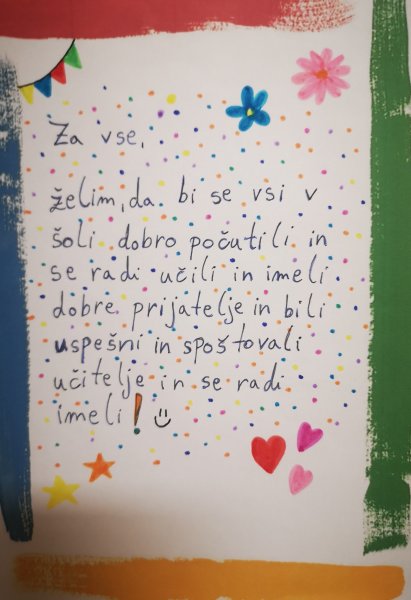 Za vse,
želim, da bi se vsi v
šoli dobro počutili in
se radi učili in imeli
dobre prijatelje in bili
uspešni in spoštovali
učitelje in se radi
imeli!